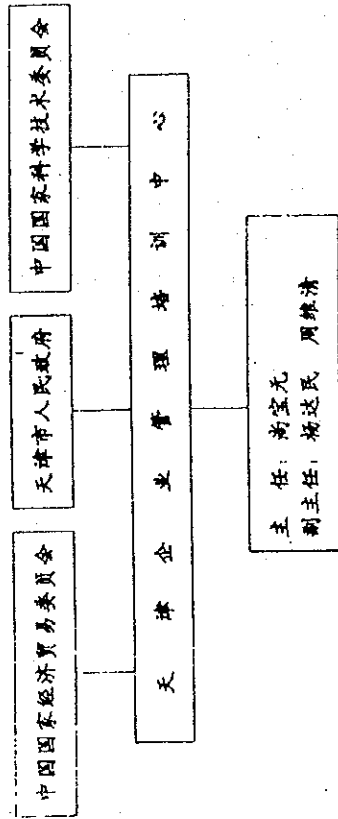 中国国家经济贸易委员会
天津市人民政府
中国国家科学技术委员会
天津企业管理培训中心
主 任：尚宝元
副主任：杨达民 周维清